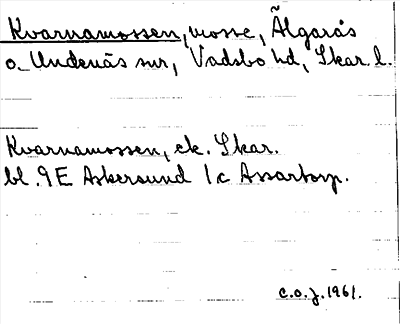 Kvarnamossen, mosse, Älgarås
o. Undenäs snr, Vadsbo hd, Skar. l.
Kvarnamossen, ek. Skar.
bl. 9E Askersund 1c Assartorp.
c.o.j. 1961.